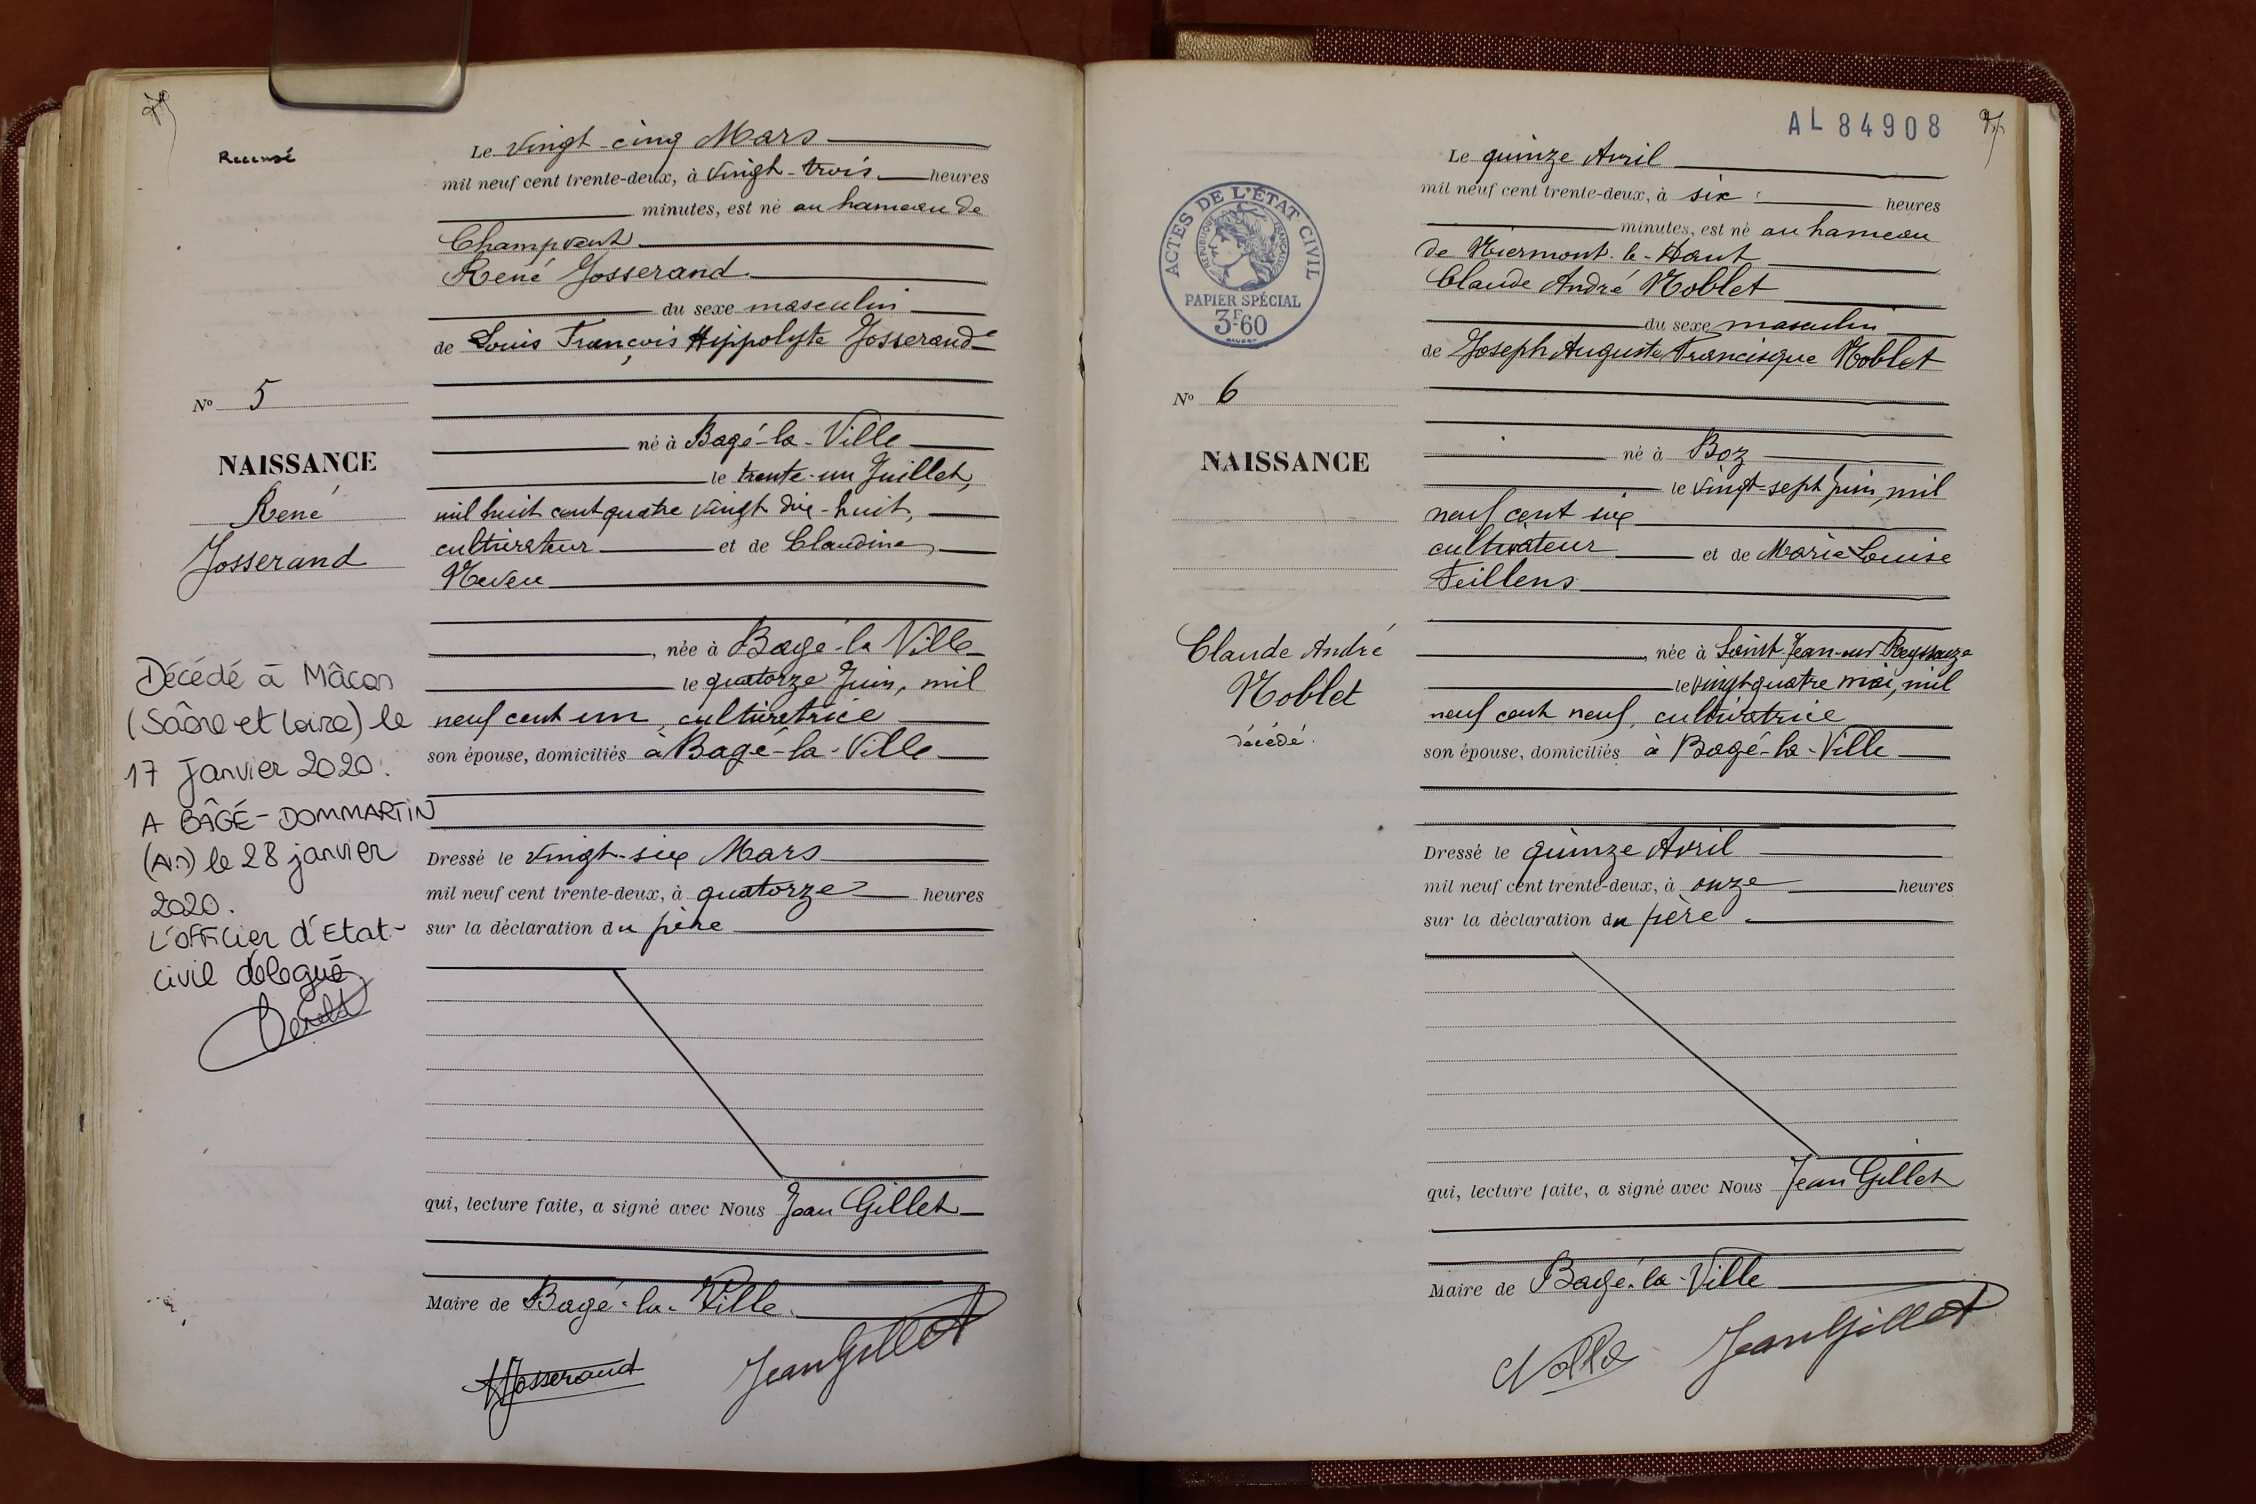 Recensé
Le vingt-cinq Mars
mil neuf cent trente-deux, à vingt-trois heures
minutes, est né au hameau de
Champvent
René Josserand
du sexe masculin
de Louis François Hippolyte Josserand
né à Bagé-la-Ville
le trente-un Juillet,
mil huit cent quatre vingt dix-huit,
cultivateur et de Claudine
Neveu
née à Bagé-la-Ville
le quatorze Juin, mil
neuf cent un, cultivatrice
son épouse, domiciliés à Bagé-la-Ville
Dressé le vingt-six Mars
mil neuf cent trente-deux, à quatorze heures
sur la déclaration du père
qui, lecture faite, a signé avec Nous Jean Gillet
Maire de Bagé-la-Ville
HJosserand JeanGillet
No 5
NAISSANCE
René
Josserand
Décédé à Mâcon
(Saône et Loire) le
17 Janvier 2020.
A BÂGÉ-DOMMARTIN
(Ain) le 28 janvier
2020.
L'officier d'Etat-
civil délégué
AL 84908
ACTES DE L'ÉTAT CIVIL
RÉPUBLIQUE FRANÇAISE
PAPIER SPÉCIAL
3F.60
Le quinze Avril
mil neuf cent trente-deux, à six heures
minutes, est né au hameau
de Niermont-le-Haut
Claude André Noblet
du sexe masculin
de Joseph Auguste Francisque Noblet
né à Boz
le vingt-sept Juin, mil
neuf cent six
cultivateur et de Marie Louise
Feillens
née à Saint-Jean-sur-Reyssouze
le vingt quatre mai, mil
neuf cent neuf, cultivatrice
son épouse, domiciliés à Bagé-la-Ville
Dressé le quinze Avril
mil neuf cent trente-deux, à onze heures
sur la déclaration du père
qui, lecture faite, a signé avec Nous Jean Gillet
Maire de Bagé-la-Ville
JeanGillet
No 6
NAISSANCE
Claude André
Noblet
décédé.